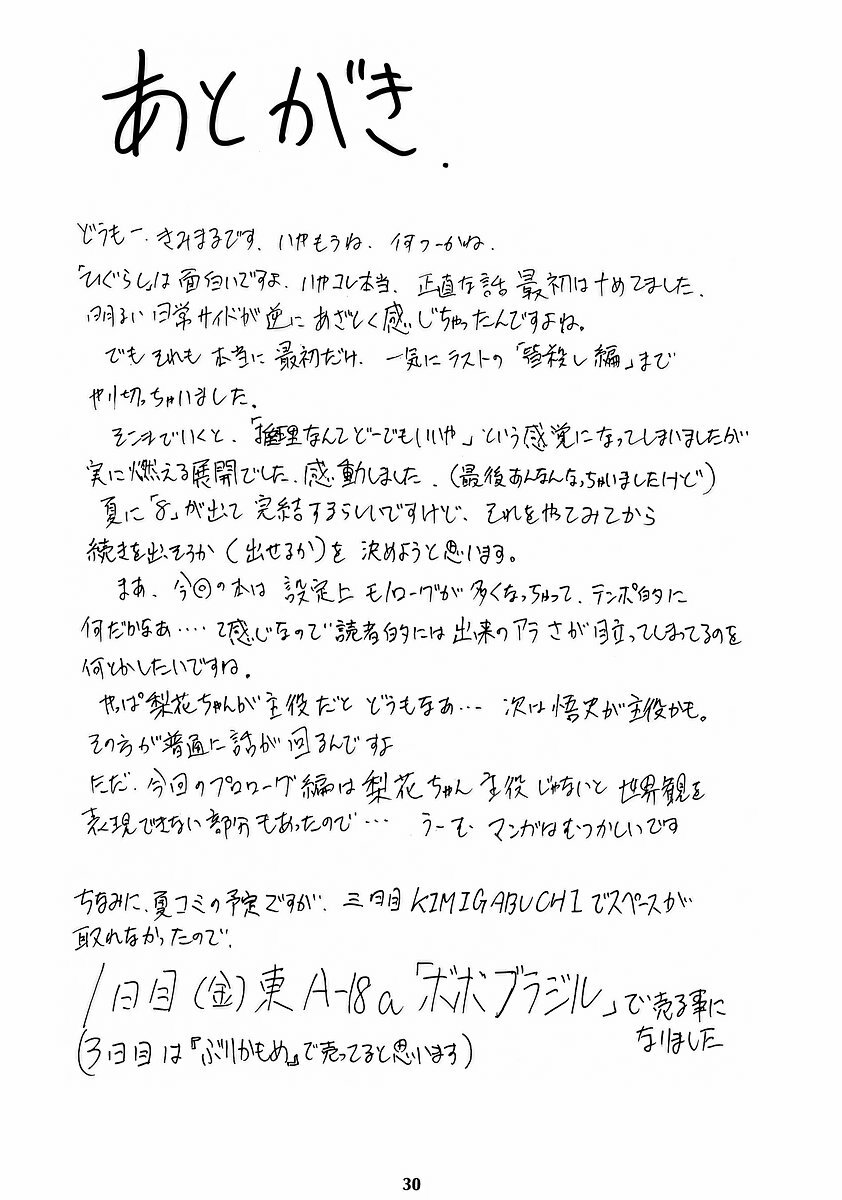 あとがき.
どうもー、きみまるです、いやもうね、何つーかね、
「ひぐらし」は面白いですよ、いやコレ本当、正直な話最初はナめてました、
明るい日常サイドが逆にあざとく感じちゃったんですよね。
でもそれも本当に最初だけ、一気にラストの「皆殺し編」まで
やり切っちゃいました。
そこまでいくと、「推理なんてどーでもいいや」という感覚になってしまいましたが
実に燃える展開でした、感動しました、(最後あんなんなっちゃいましたけど)
夏に「8」が出て完結するらしいですけど、それをやってみてから
続きを出そうか(出せるか)を決めようと思います。
まあ、今回の本は設定上モノローグが多くなっちゃって、テンポ的に
何だかなあ‥‥て感じなので読者的には出来のアラさが目立ってしまってるのを
何とかしたいですね。
やっぱ梨花ちゃんが主役だとどうもなあ…次は悟史が主役かも。
その方が普通に話が回るんですよ
ただ、今回のプロローグ編は梨花ちゃん主役じゃないと世界観を
表現できない部分もあったので…うーむマンガはむつかしいです
ちなみに、夏コミの予定ですが、三日目KIMIGABUCHIでスペースが
取れなかったので、
1日目(金)東A-18a「ボボブラジル」で売る事に
なりました
(3日目は『ぶりかもめ』で売ってると思います)
30